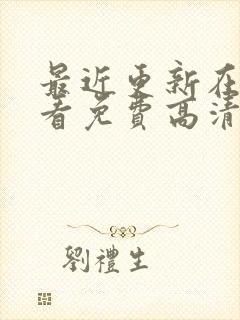 最近更新在
看免费高清
劉禮生